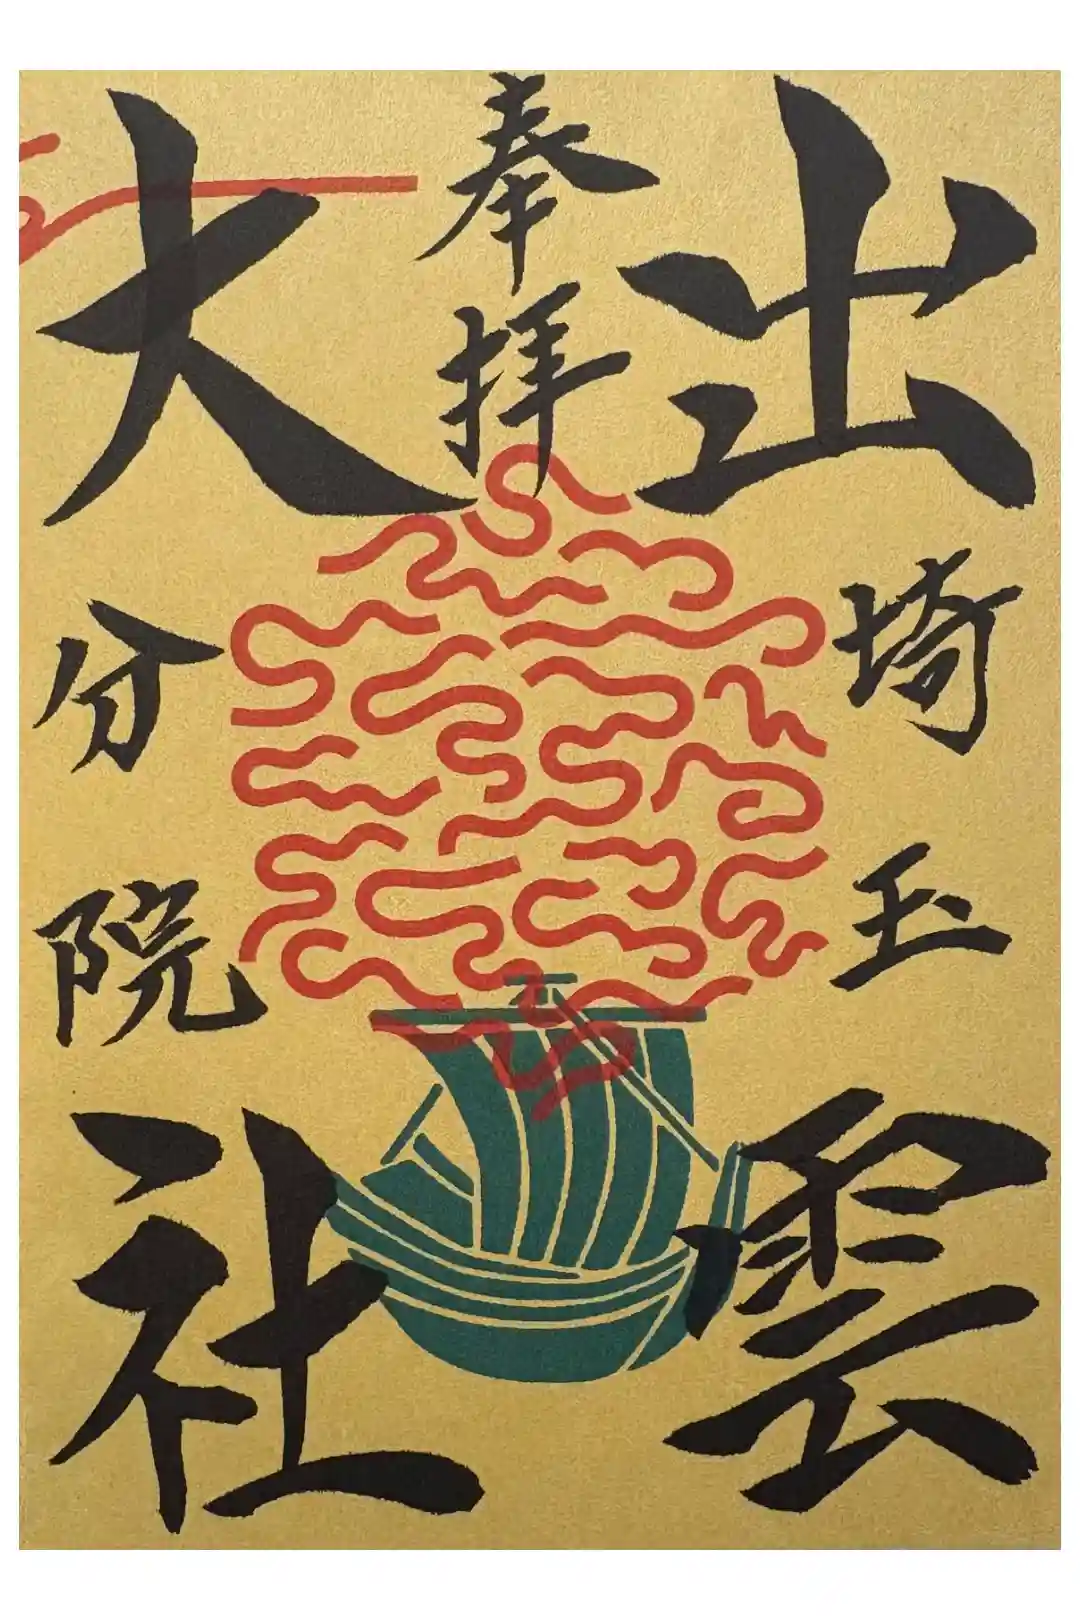 奉拝
出雲
大社
埼玉
分院